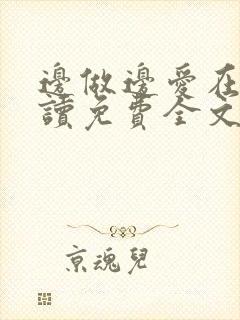 邊做邊愛在
讀免費全文
京魂兒